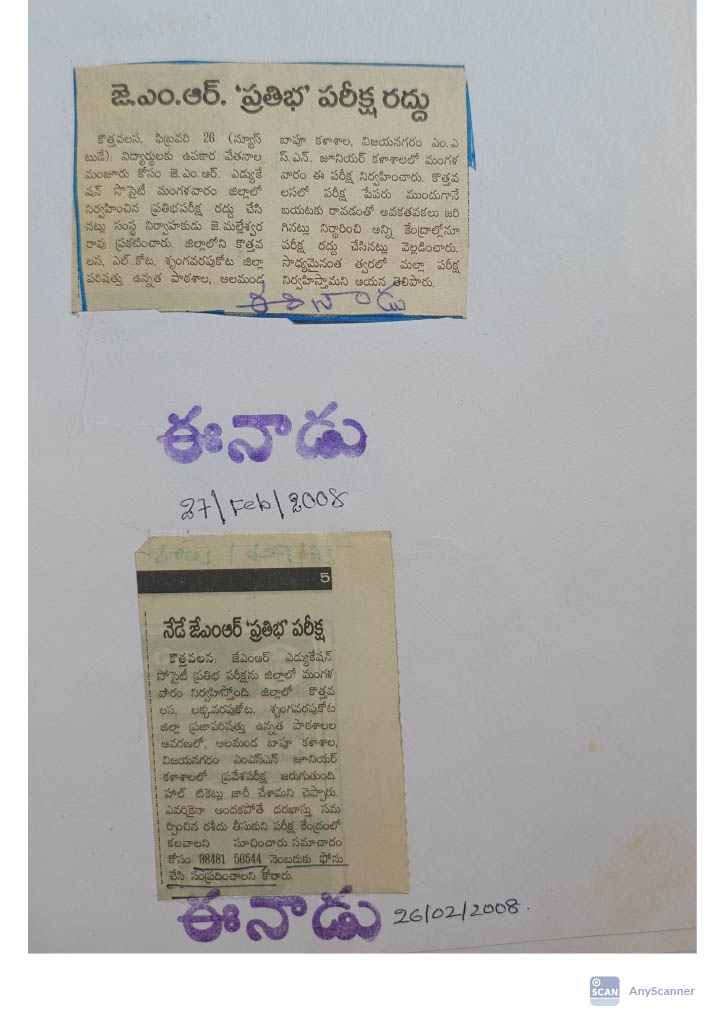 జె.ఎం.ఆర్. 'ప్రతిభ' పరీక్ష రద్దు
కొత్తవలస, ఫిబ్రవరి 26 (న్యూస్
టుడే): విద్యార్థులకు ఉపకార వేతనాల
మంజూరు కోసం జె.ఎం.ఆర్. ఎడ్యుకే
షన్ సొసైటీ మంగళవారం జిల్లాలో
నిర్వహించిన ప్రతిభపరీక్ష రద్దు చేసి
నట్లు సంస్థ నిర్వాహకుడు జె.మల్లేశ్వర
రావు ప్రకటించారు. జిల్లాలోని కొత్తవ
లస, ఎల్.కోట, శృంగవరపుకోట జిల్లా
పరిషత్తు ఉన్నత పాఠశాల, అలమండ
బాపూ కళాశాల, విజయనగరం ఎం.ఎ
స్.ఎన్. జూనియర్ కళాశాలలో మంగళ
వారం ఈ పరీక్ష నిర్వహించారు. కొత్తవ
లసలో పరీక్ష పేపరు ముందుగానే
బయటకు రావడంతో అవకతవకలు జరి
గినట్లు నిర్ధారించి అన్ని కేంద్రాల్లోనూ
పరీక్ష రద్దు చేసినట్లు వెల్లడించారు.
సాధ్యమైనంత త్వరలో మల్లా పరీక్ష
నిర్వహిస్తామని ఆయన తెలిపారు.
ఈనాడు
ఈనాడు
27/Feb/2008
5
నేడే జేఎంఆర్ 'ప్రతిభ' పరీక్ష
కొత్తవలస: జేఎంఆర్ ఎడ్యుకేషన్
సోసైటీ ప్రతిభ పరీక్షను జిల్లాలో మంగళ
వారం నిర్వహిస్తోంది. జిల్లాలో కొత్తవ
లస, లక్కవరపుకోట, శృంగవరపుకోట
జిల్లా ప్రజాపరిషత్తు ఉన్నత పాఠశాలల
ఆవరణలో, అలమండ బాపూ కళాశాల,
విజయనగరం ఎంఎస్ఎన్ జూనియర్
కళాశాలలో ప్రవేశపరీక్ష జరుగుతుంది.
హాల్ టికెట్లు జారీ చేశామని చెప్పారు.
ఎవరికైనా అందకపోతే దరఖాస్తు సమ
ర్పించిన రశీదు తీసుకుని పరీక్ష కేంద్రంలో
కలవాలని సూచించారు. సమాచారం
కోసం 98481 56544 నెంబరుకు ఫోను
చేసి సంప్రదించాలని కోరారు.
ఈనాడు 26/02/2008.
SCAN AnyScanner